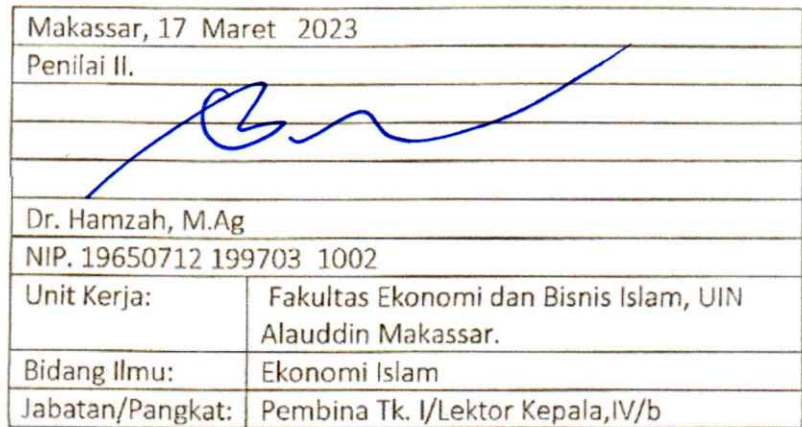 Makassar, 17 Maret 2023
Penilai II.
Dr. Hamzah, M.Ag
NIP. 19650712 199703 1002
Unit Kerja: Fakultas Ekonomi dan Bisnis Islam, UIN
Alauddin Makassar.
Bidang Ilmu: Ekonomi Islam
Jabatan/Pangkat: Pembina Tk. I/Lektor Kepala,IV/b